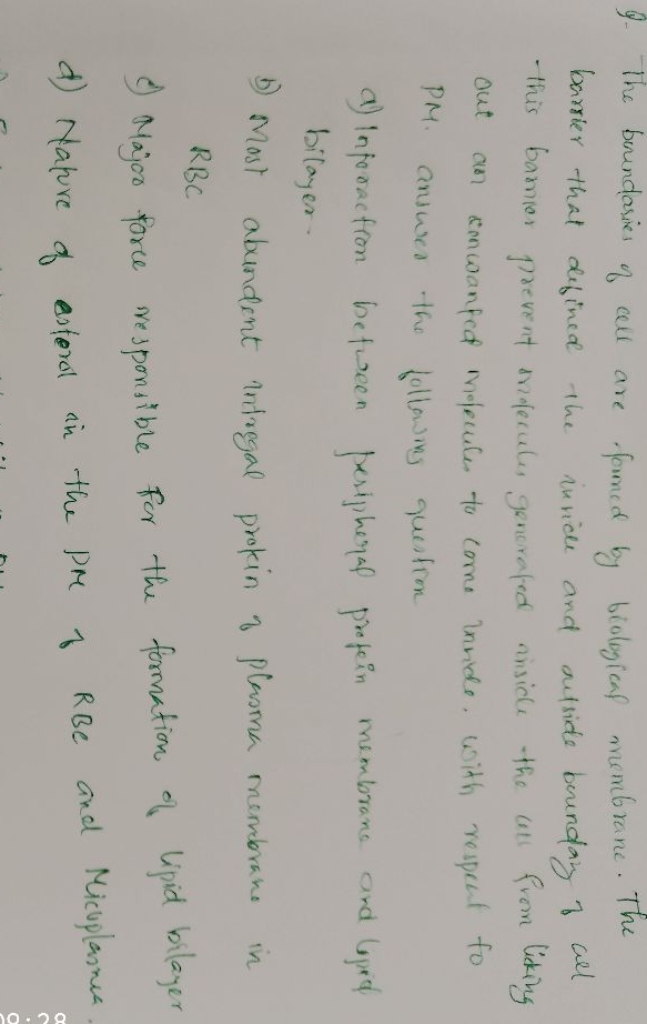 Q. The boundaries of cell are formed by biological membrane. The
barrier that defined the inside and outside boundary of cell
this barrier prevent molecules generated inside the cell from licking
out an unwanted molecules to come inside. with respect to
PM. answer the following question
a) Interaction between peripheral protein membrane and lipid
bilayer.
b) Most abundent intregal protein of plasma membrane in
RBC
c) Major force responsible for the formation of lipid bilayer
d) Nature of esterol in the PM of RBC and Micuplasma.
09:28